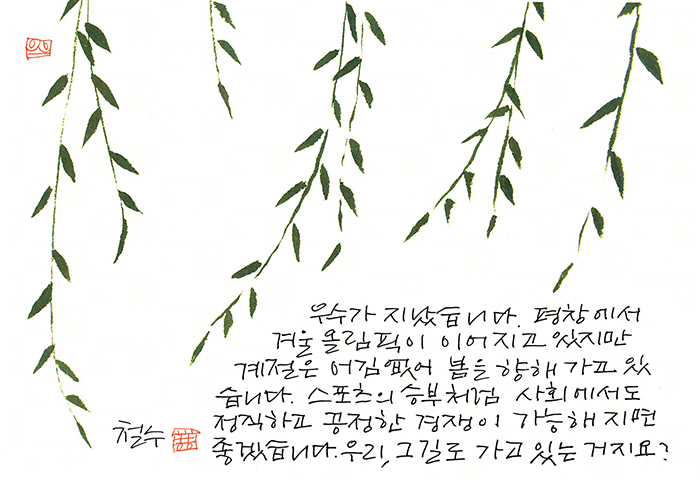 우수가 지났습니다. 평창에서
겨울올림픽이 이어지고 있지만
계절은 어김없이 봄을 향해 가고 있
습니다. 스포츠의 승부처럼 사회에서도
정직하고 공정한 경쟁이 가능해 지면
좋겠습니다. 우리, 그길로 가고 있는 거지요?
철수